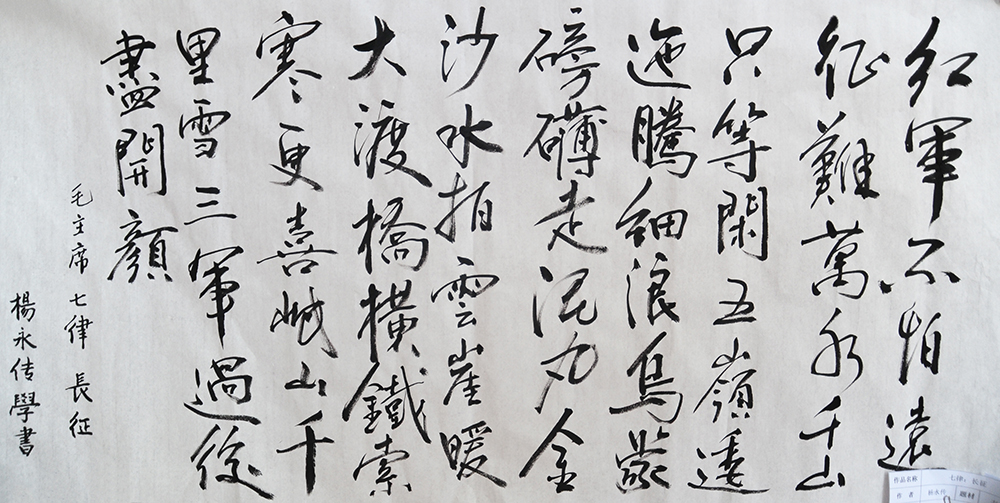 红軍不怕遠
征難萬水千山
只等閑五嶺逶
迤騰細浪烏蒙
磅礴走泥丸金
沙水拍雲崖暖
大渡橋橫鐵索
寒更喜岷山千
里雪三軍過後
盡開顏
毛主席七律長征
楊永传學書
作品名称
作者 题材